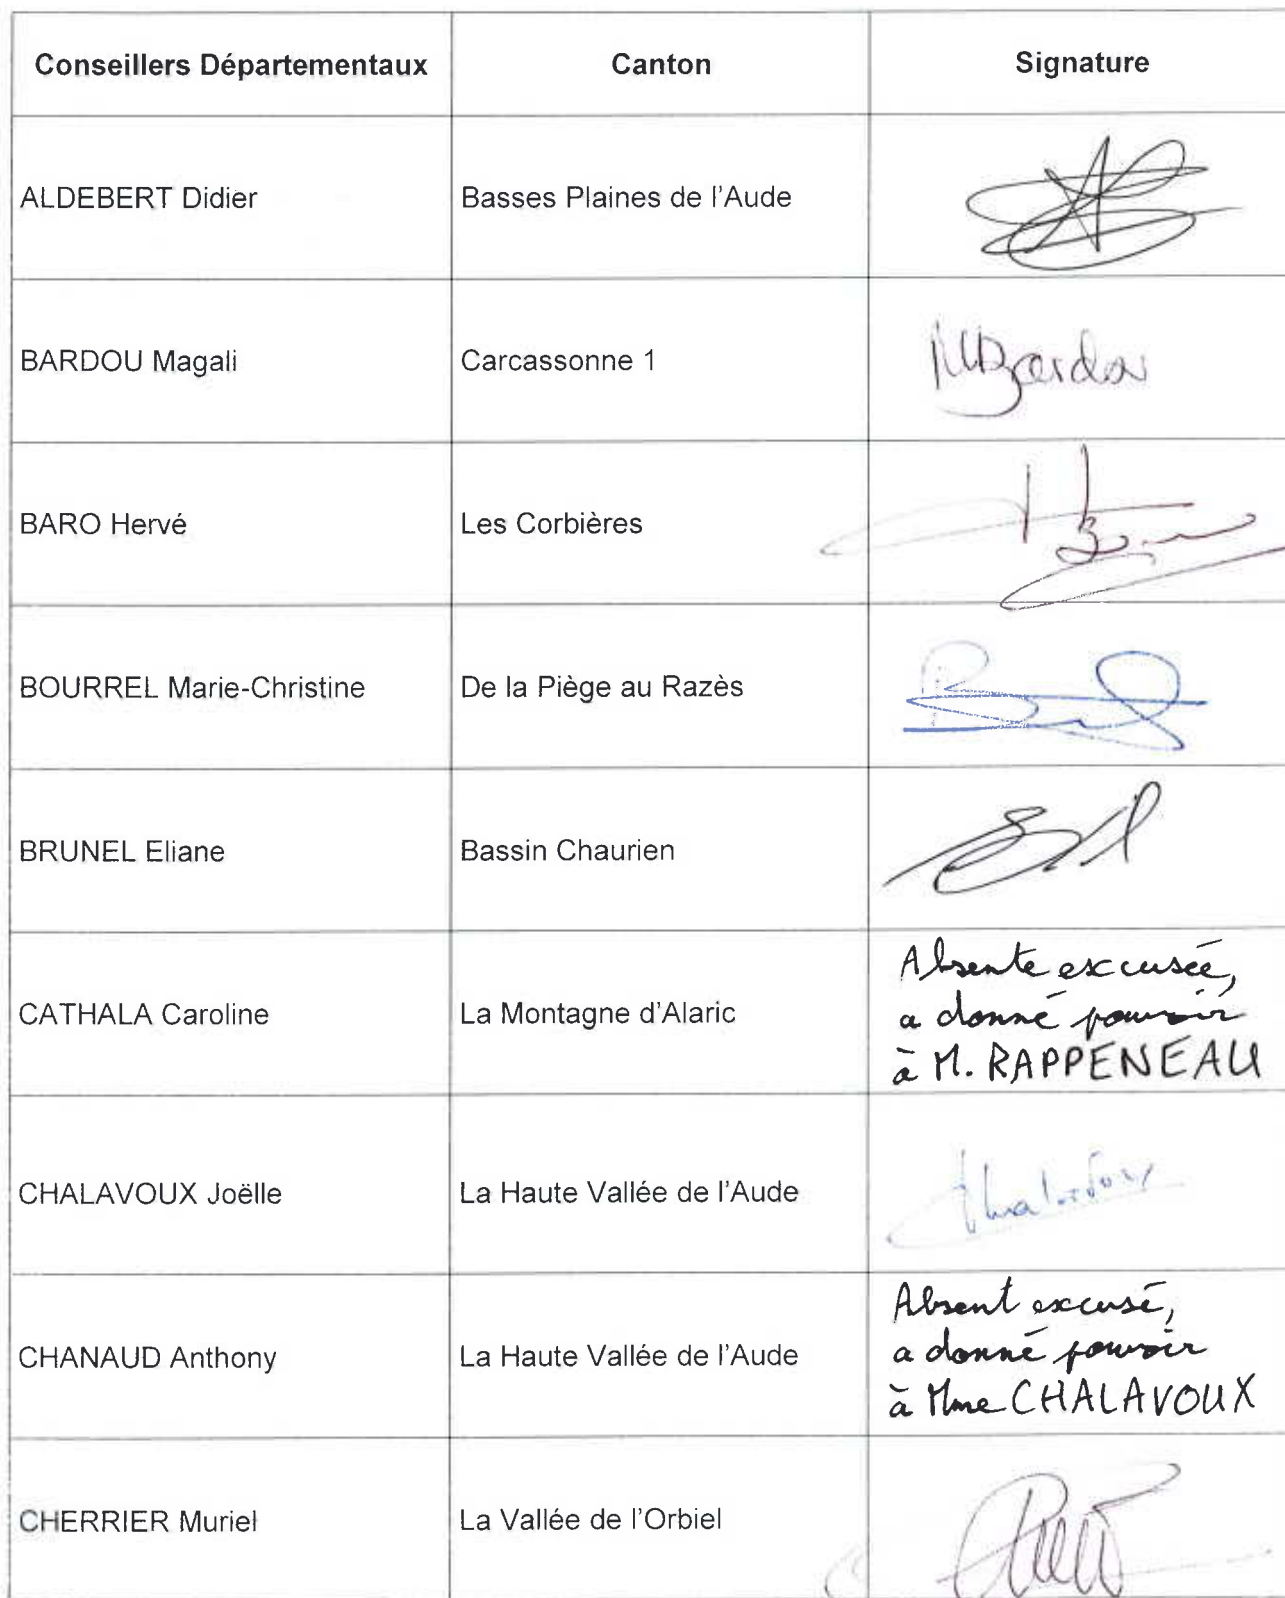 Conseillers Départementaux Canton Signature
ALDEBERT Didier Basses Plaines de l'Aude
BARDOU Magali Carcassonne 1 MBardou
BARO Hervé Les Corbières
BOURREL Marie-Christine De la Piège au Razès
BRUNEL Eliane Bassin Chaurien
CATHALA Caroline La Montagne d'Alaric
Absente excusée,
a donné pouvoir
à M. RAPPENEAU
CHALAVOUX Joëlle La Haute Vallée de l'Aude
CHANAUD Anthony La Haute Vallée de l'Aude
Absent excusé,
a donné pouvoir
à Mme CHALAVOUX
CHERRIER Muriel La Vallée de l'Orbiel